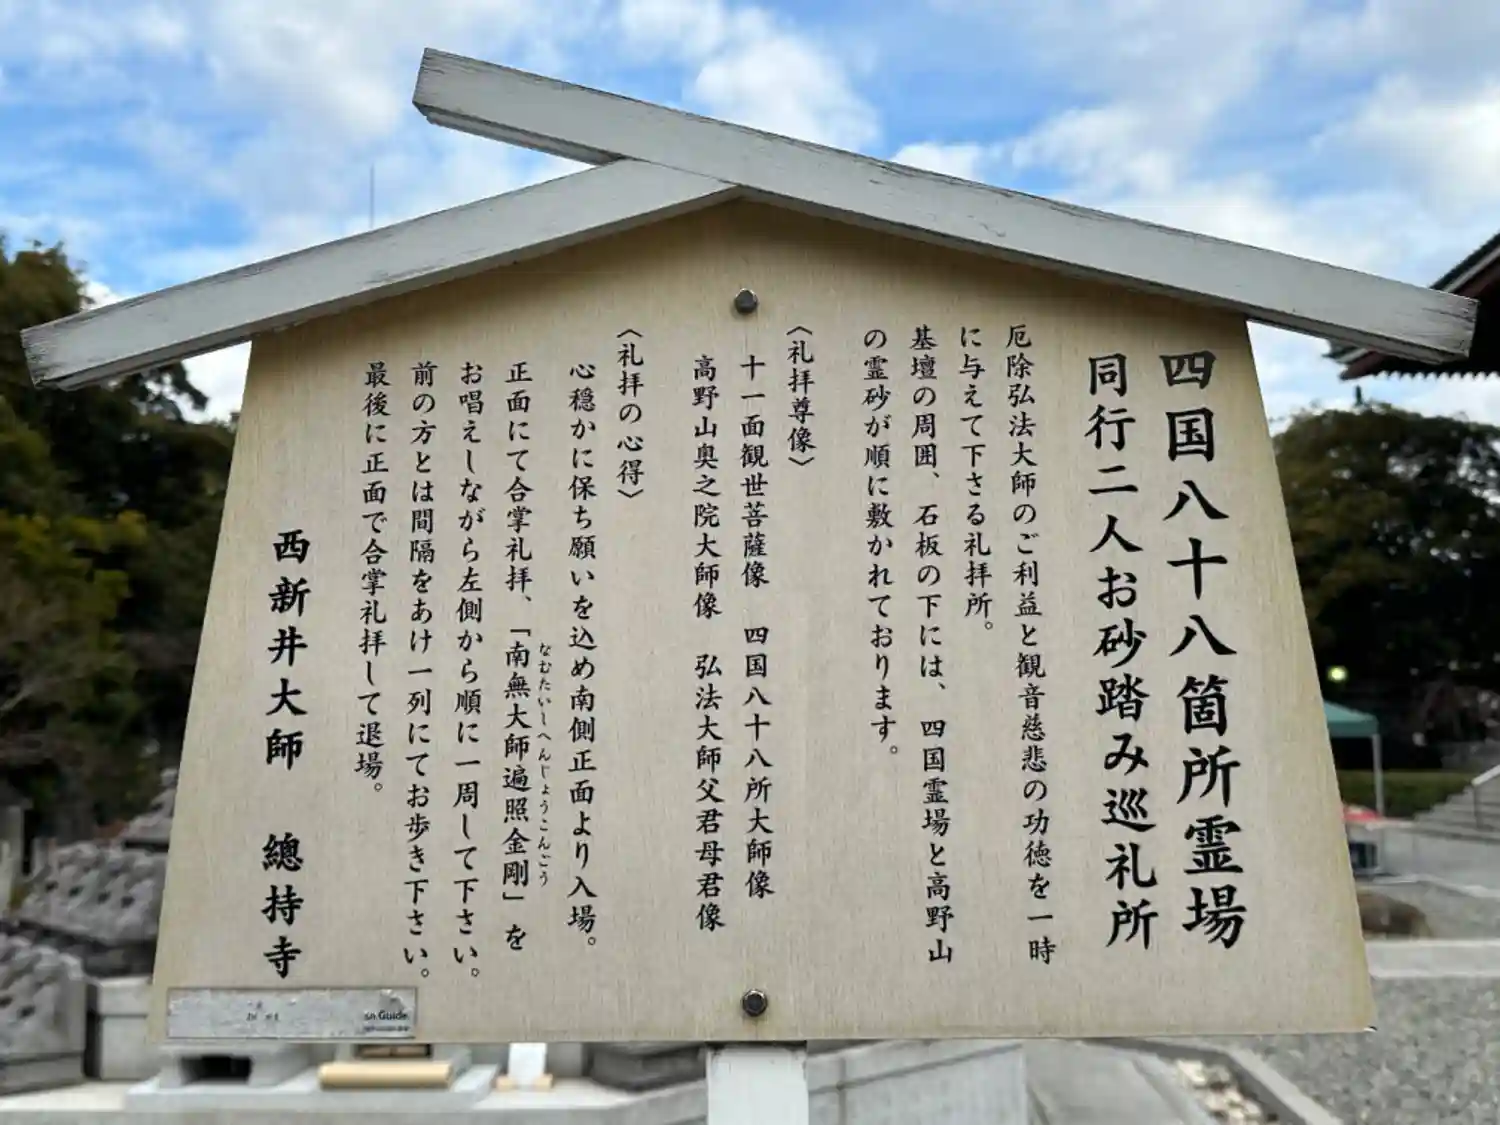 四国八十八箇所霊場
同行二人お砂踏み巡礼所
厄除弘法大師のご利益と観音慈悲の功徳を一時
に与えて下さる礼拝所。
基壇の周囲、石板の下には、四国霊場と高野山
の霊砂が順に敷かれております。
〈礼拝尊像〉
十一面観世菩薩像　四国八十八所大師像
高野山奥之院大師像　弘法大師父君母君像
〈礼拝の心得〉
心穏かに保ち願いを込め南側正面より入場。
なむたいしへんじょうこんごう
正面にて合掌礼拝、「南無大師遍照金剛」を
お唱えしながら左側から順に一周して下さい。
前の方とは間隔をあけ一列にてお歩き下さい。
最後に正面で合掌礼拝して退場。
西新井大師　總持寺
Guide